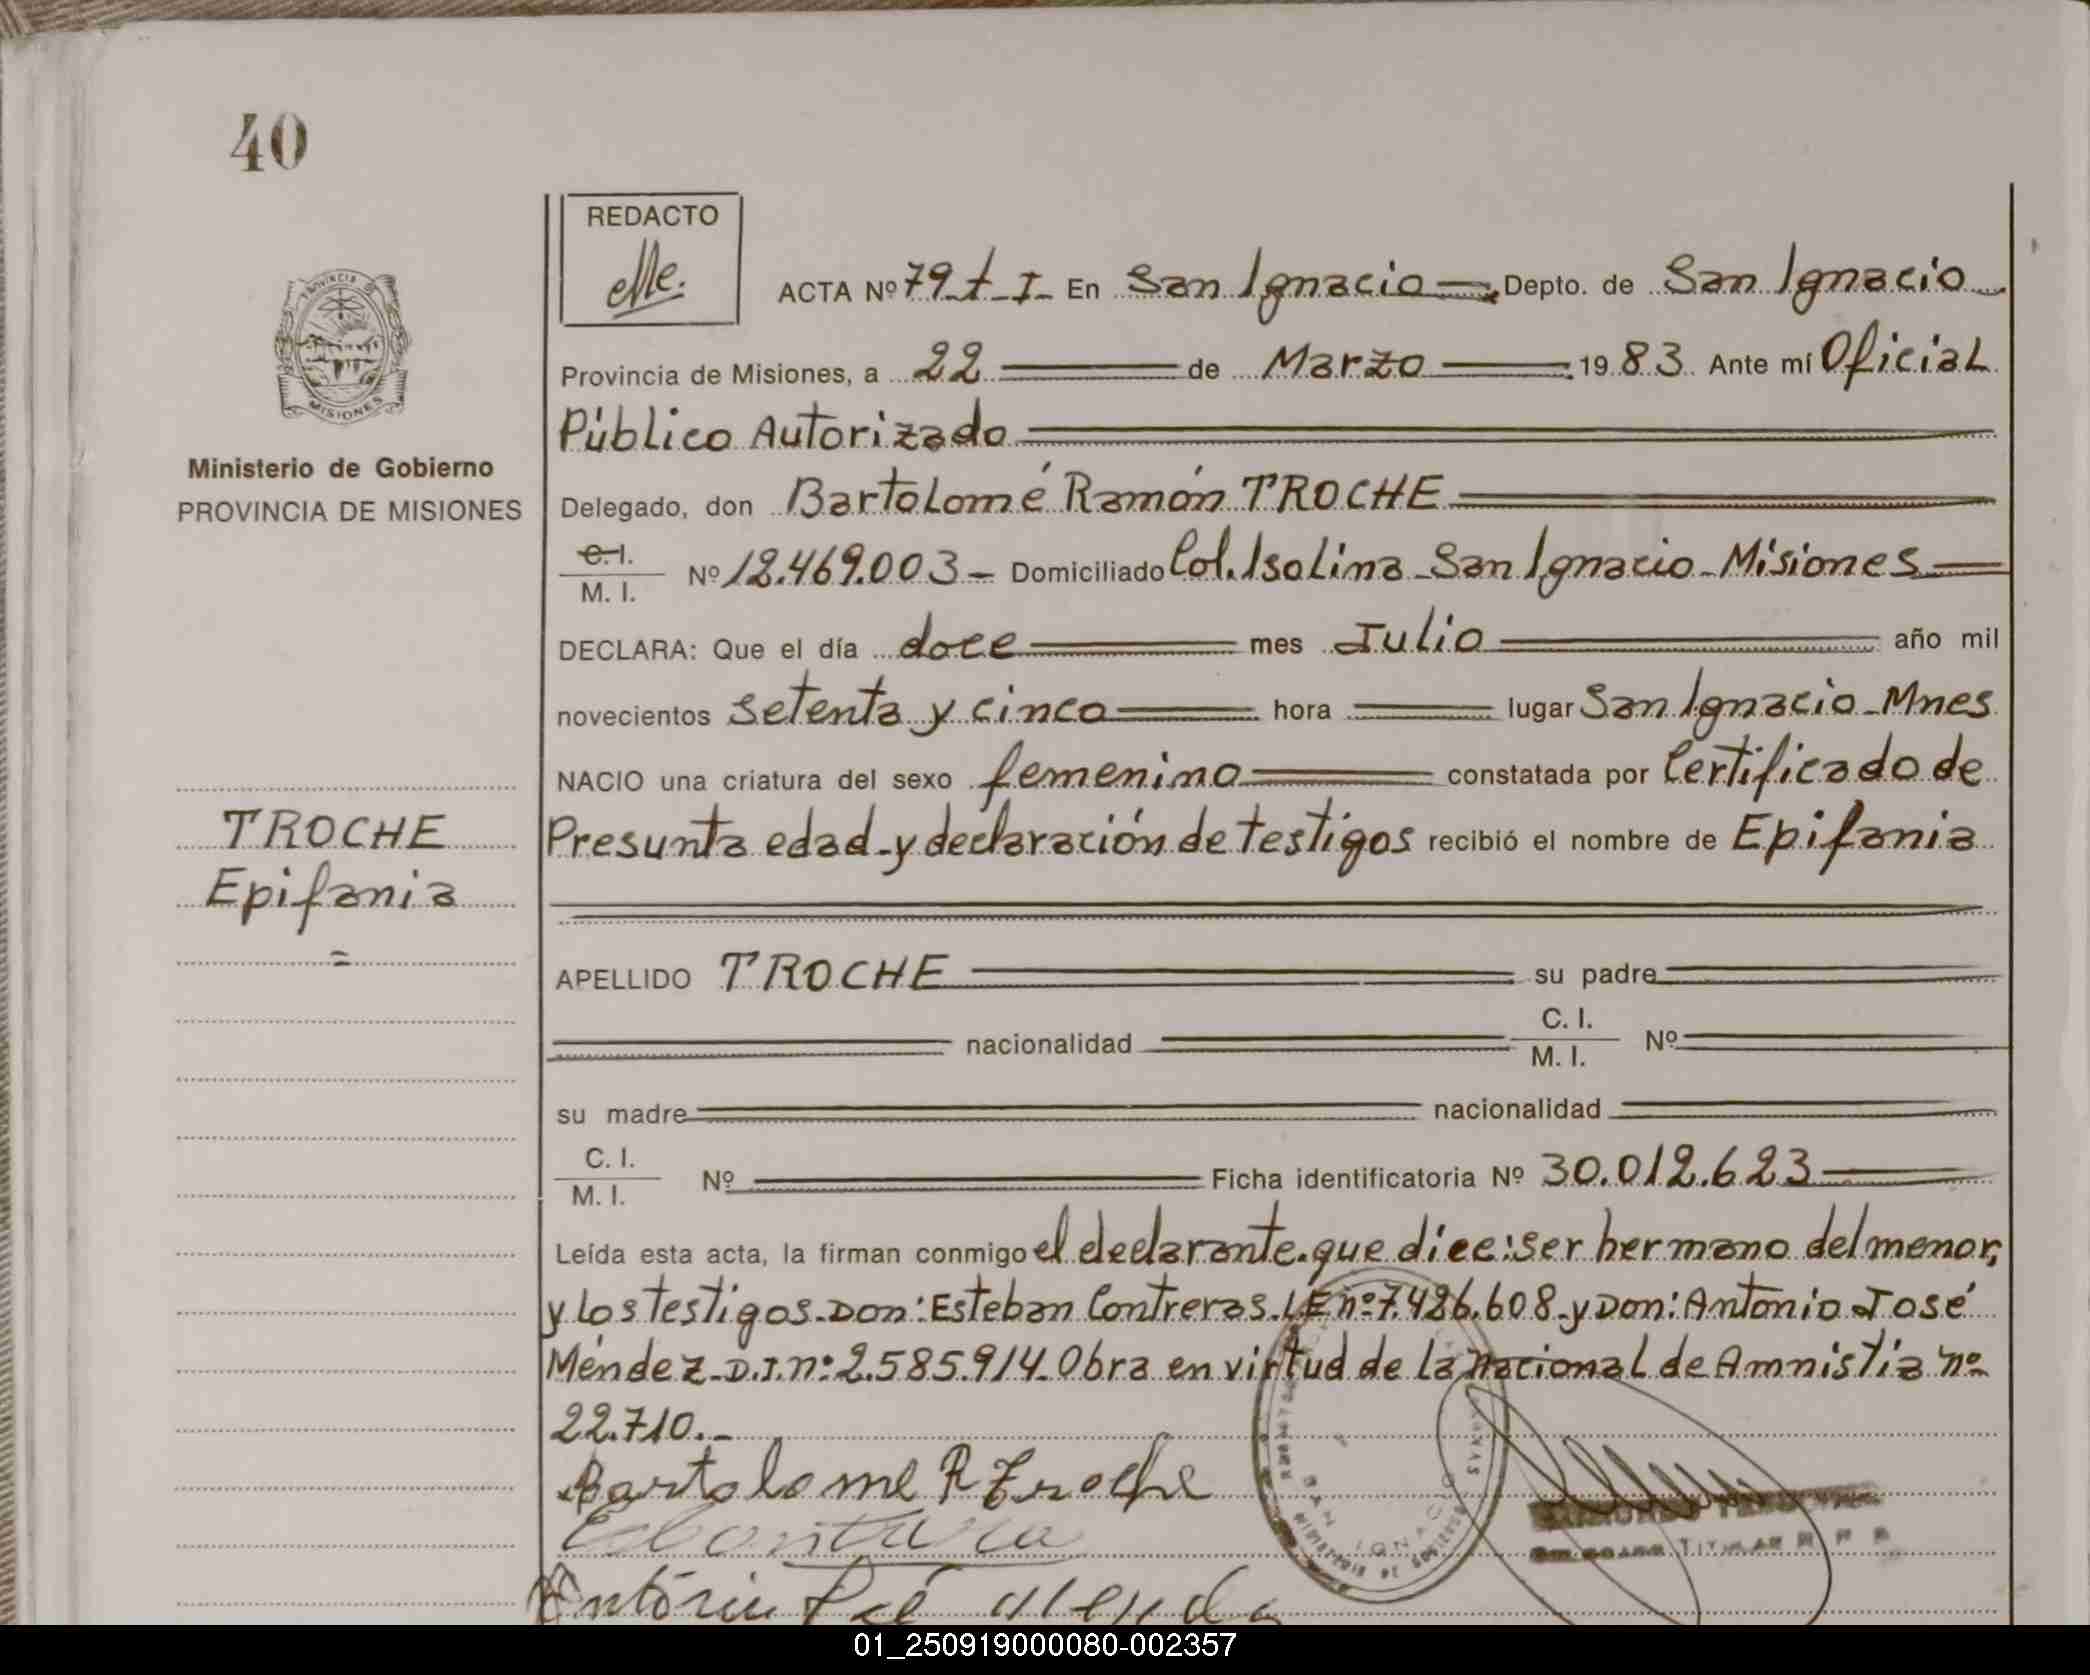 40
REDACTO
PROVINCIA D
MISIONES
ACTA Nº 79-t-I- En San Ignacio Depto. de San Ignacio
Provincia de Misiones, a 22 de Marzo 1983. Ante mí Oficial
Público Autorizado
Ministerio de Gobierno
PROVINCIA DE MISIONES
Delegado, don Bartolomé Ramón TROCHE
C. I.
M. I. Nº 12.469.003- Domiciliado Col. Isolina-San Ignacio-Misiones
DECLARA: Que el día doce mes Julio año mil
novecientos setenta y cinco hora lugar San Ignacio-Mnes
NACIO una criatura del sexo femenino constatada por Certificado de
Presunta edad-y declaración de testigos recibió el nombre de Epifania
TROCHE
Epifania
=
APELLIDO TROCHE su padre
nacionalidad C. I. M. I. Nº
su madre nacionalidad
C. I.
M. I. Nº Ficha identificatoria Nº 30.012.623
Leída esta acta, la firman conmigo el declarante.que dice:ser hermano del menor,
y los testigos-Don:Esteban Contreras.LE nº7.426.608-y Don:Antonio José
Méndez-D.I.nº:2.585.914-Obra en virtud de la nacional de Amnistía nº
22.710.-
Bartolome R Troche
SAN IGNACIO
TITULAR
01_250919000080-002357